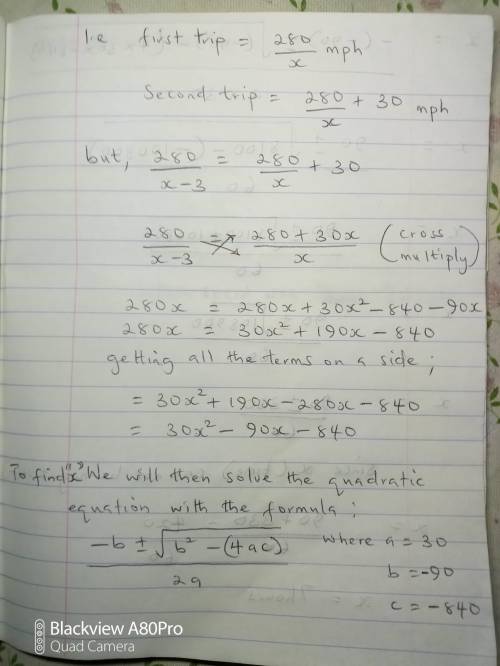 I.e first trip = 280/x mph
Second trip = 280/x + 30 mph
but, 280/x-3 = 280/x + 30
280/x-3 = 280+30x/x (cross multiply)
280x = 280x + 30x² - 840 - 90x
280x = 30x² + 190x - 840
getting all the terms on a side;
= 30x² + 190x - 280x - 840
= 30x² - 90x - 840
To find "x" We will then solve the quadratic
equation with the formula:
-b ± √b² - (4ac) / 2a where a = 30
b = -90
c = -840
Blackview A80Pro
Quad Camera